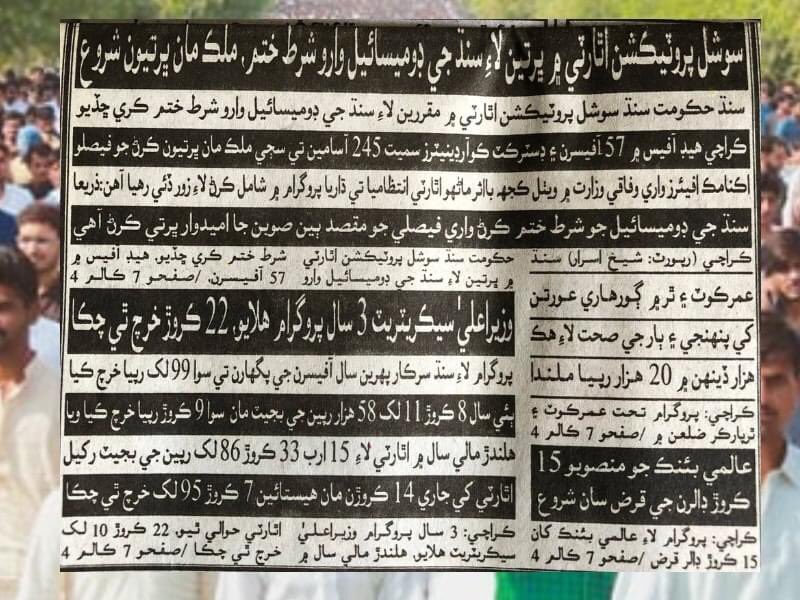 سوشل پروٽيڪشن اٿارٽي ۾ ڀرتين لاءِ سنڌ جي ڊوميسائيل وارو شرط ختم، ملڪ مان ڀرتيون شروع
سنڌ حڪومت سنڌ سوشل پروٽيڪشن اٿارٽي ۾ مقررين لاءِ سنڌ جي ڊوميسائيل وارو شرط ختم ڪري ڇڏيو
ڪراچي هيڊ آفيس ۾ 57 آفيسرن ۽ ڊسٽرڪٽ ڪوآرڊينيٽرز سميت 245 آسامين تي سڄي ملڪ مان ڀرتيون ڪرڻ جو فيصلو
اڪنامڪ افيئرز واري وفاقي وزارت ۾ ويٺل ڪجهه بااثر ماڻهو اٿارٽي انتظاميا تي ڌاريا پروگرام ۾ شامل ڪرڻ لاءِ زور ڏئي رهيا آهن: ذريعا
سنڌ جي ڊوميسائيل جو شرط ختم ڪرڻ واري فيصلي جو مقصد ٻين صوبن جا اميدوار ڀرتي ڪرڻ آهي
ڪراچي (رپورٽ: شيخ اسرار) سنڌ
حڪومت سنڌ سوشل پروٽيڪشن اٿارٽي
۾ ڀرتين لاءِ سنڌ جي ڊوميسائيل وارو
شرط ختم ڪري ڇڏيو، هيڊ آفيس ۾
57 آفيسرن، /صفحو 7 ڪالم 4
عمرڪوٽ ۽ ٿر ۾ ڳورهاري عورتن
کي پنهنجي ۽ ٻار جي صحت لاءِ هڪ
هزار ڏينهن ۾ 20 هزار رپيا ملندا
ڪراچي: پروگرام تحت عمرڪوٽ ۽
ٿرپارڪر ضلعن ۾ /صفحو 7 ڪالم 4
عالمي بئنڪ جو منصوبو 15
ڪروڙ ڊالرن جي قرض سان شروع
ڪراچي: پروگرام لاءِ عالمي بئنڪ کان
15 ڪروڙ ڊالر قرض /صفحو 7 ڪالم 4
وزيراعليٰ سيڪريٽريٽ 3 سال پروگرام هلايو، 22 ڪروڙ خرچ ٿي چڪا
پروگرام لاءِ سنڌ سرڪار پهرين سال آفيسرن جي پگهارن تي سوا 99 لک رپيا خرچ ڪيا
ٻئي سال 8 ڪروڙ 11 لک 58 هزار رپين جي بجيٽ مان سوا 9 ڪروڙ رپيا خرچ ڪيا ويا
هلندڙ مالي سال ۾ اٿارٽي لاءِ 15 ارب 33 ڪروڙ 86 لک رپين جي بجيٽ رکيل
اٿارٽي کي جاري 14 ڪروڙن مان هيستائين 7 ڪروڙ 95 لک خرچ ٿي چڪا
ڪراچي: 3 سال پروگرام وزيراعليٰ
سيڪريٽريٽ هلايو، هلندڙ مالي سال ۾
اٿارٽي حوالي ٿيو، 22 ڪروڙ 10 لک
خرچ ٿي چڪا /صفحو 7 ڪالم 4